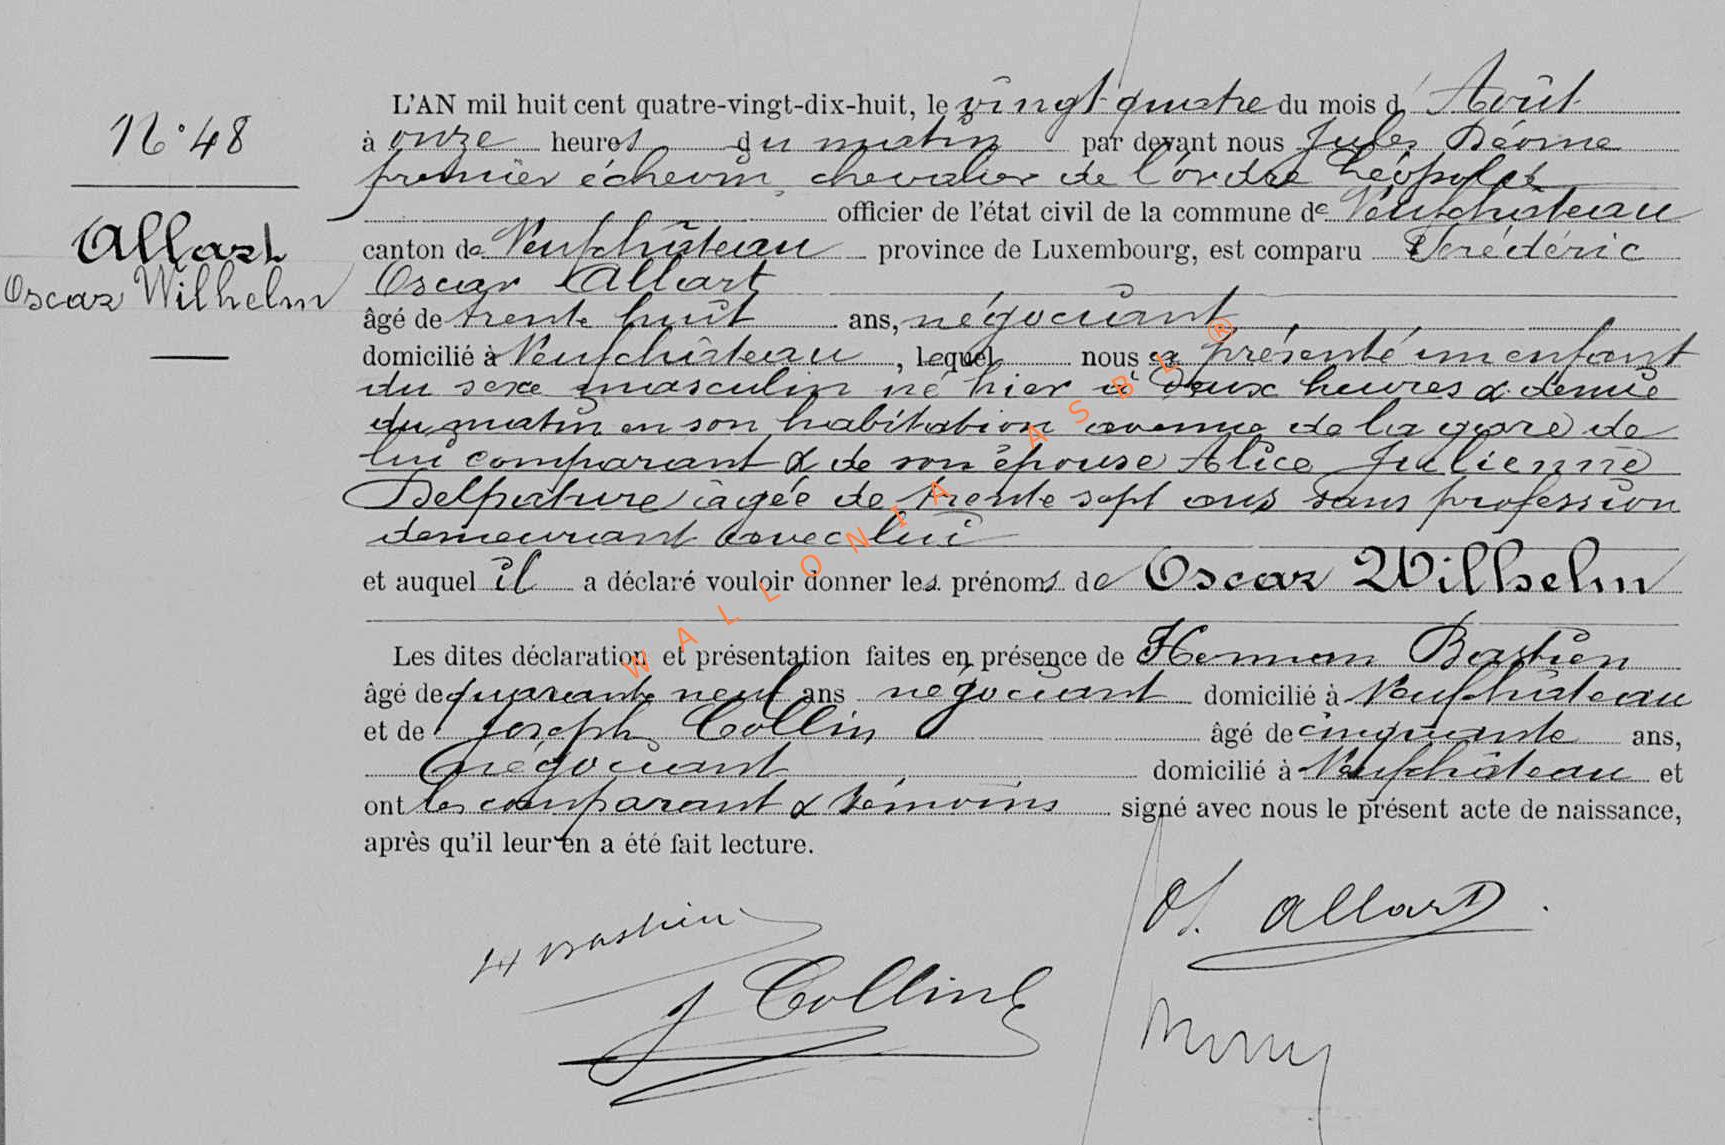 N° 48
Allart
Oscar Wilhelm
L'AN mil huit cent quatre-vingt-dix-huit, le vingt-quatre du mois d' Août
à onze heures du matin par devant nous Jules Déome
premier échevin, chevalier de l'ordre Léopold
officier de l'état civil de la commune de Neufchâteau
canton de Neufchâteau province de Luxembourg, est comparu Frédéric
Oscar Allart
âgé de trente huit ans, négociant
domicilié à Neufchâteau, lequel nous a présenté un enfant
du sexe masculin né hier à deux heures & demie
du matin en son habitation avenue de la gare de
lui comparant & de son épouse Alice Julienne
Delpature âgée de trente sept ans sans profession
demeurant avec lui
et auquel il a déclaré vouloir donner les prénoms de Oscar Wilhelm
Les dites déclaration et présentation faites en présence de Herman Bastien
âgé de quarante neuf ans négociant domicilié à Neufchâteau
et de Joseph Collin âgé de cinquante ans,
négociant domicilié à Neufchâteau et
ont les comparant & témoins signé avec nous le présent acte de naissance,
après qu'il leur en a été fait lecture.
O. Allart
H Bastien
J Collin
WALLONIA ASBL ®